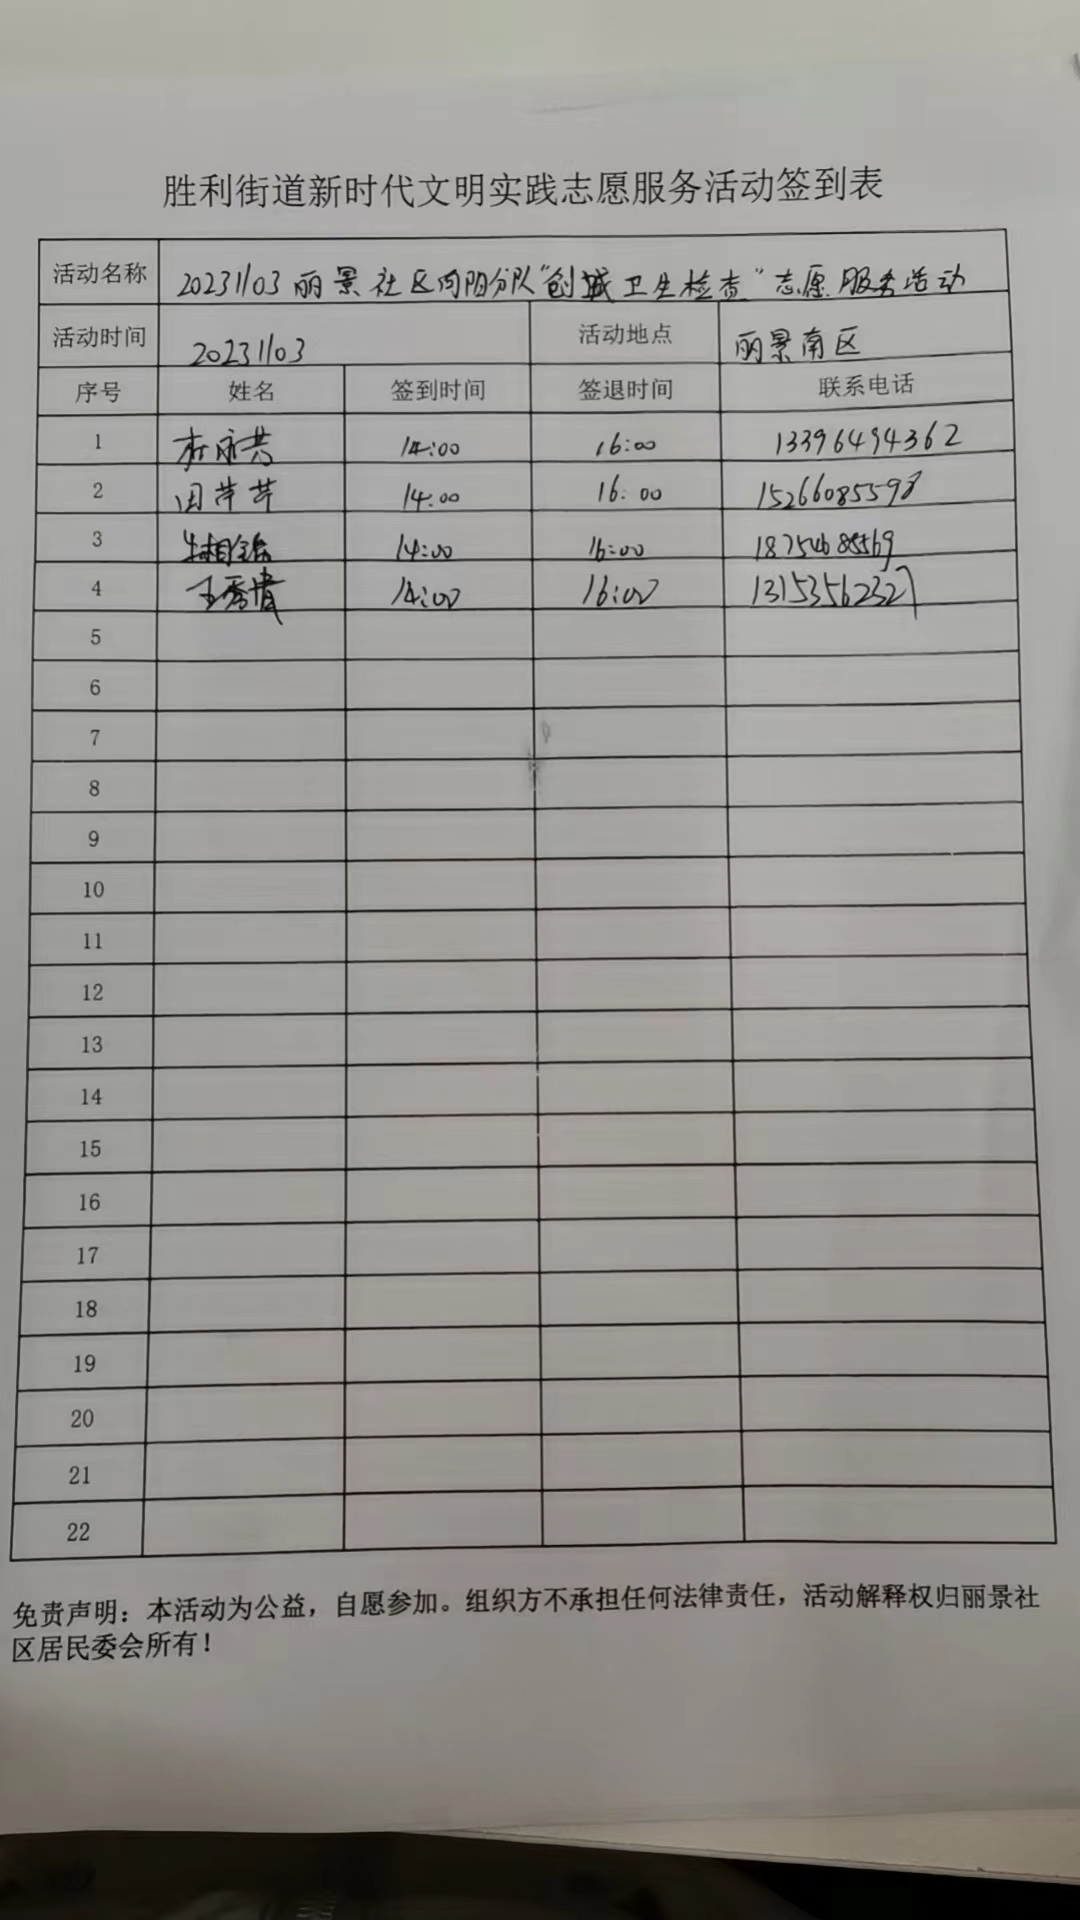 胜利街道新时代文明实践志愿服务活动签到表
活动名称 20231103丽景社区向阳分队“创城卫生检查”志愿服务活动
活动时间 20231103 活动地点 丽景南区
序号 姓名 签到时间 签退时间 联系电话
1 14:00 16:00 13396494362
2 田芹芹 14:00 16:00 15266085598
3 14:00 16:00 18754685569
4 王秀 14:00 16:00 13153562327
5
6
7
8
9
10
11
12
13
14
15
16
17
18
19
20
21
22
免责声明：本活动为公益，自愿参加。组织方不承担任何法律责任，活动解释权归丽景社
区居民委会所有！